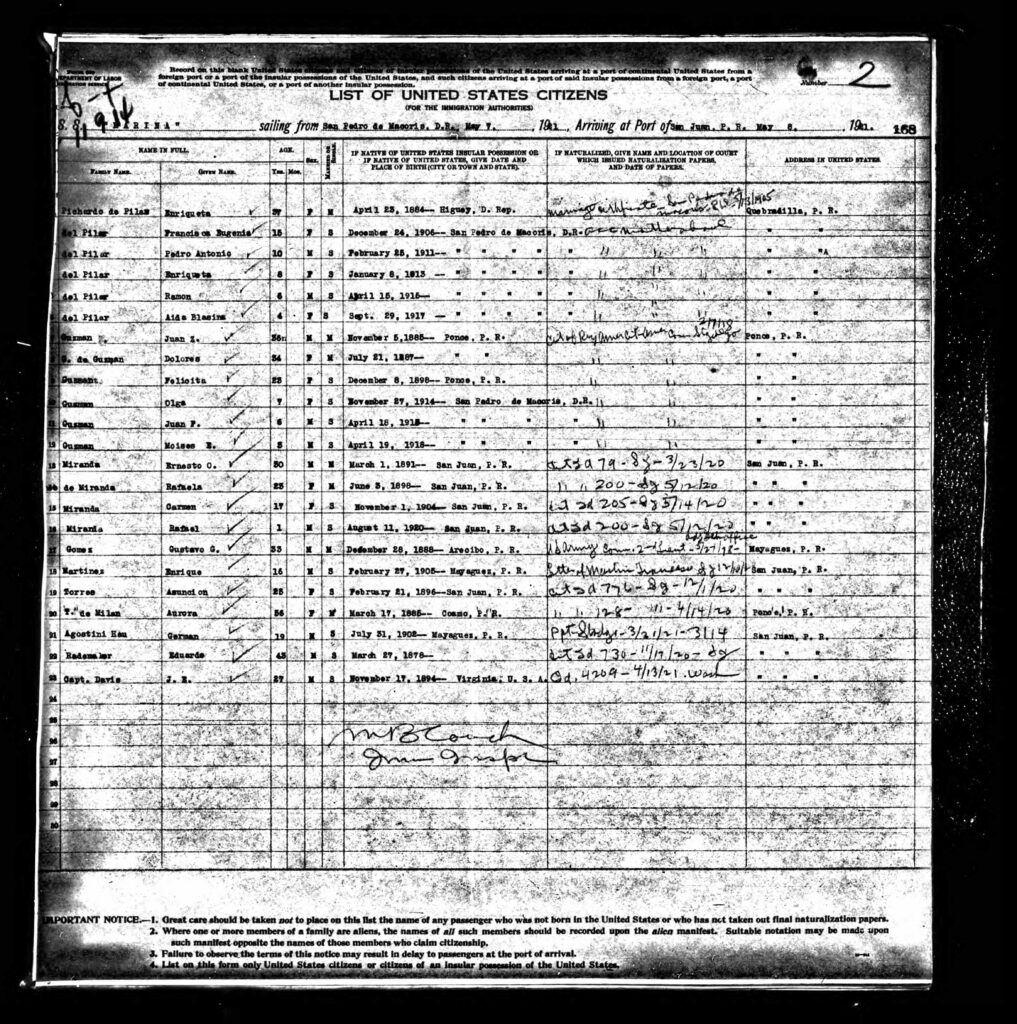 2
DEPARTMENT OF LABOR
Record on this blank United States citizens and citizens of insular possessions of the United States arriving at a port of continental United States from a
foreign port or a port of the insular possessions of the United States, and such citizens arriving at a port of said insular possessions from a foreign port, a port
of continental United States, or a port of another insular possession.
Number
LIST OF UNITED STATES CITIZENS
(FOR THE IMMIGRATION AUTHORITIES)
S. S. "MARINA" sailing from San Pedro de Macoris, D.R. May 7, 1921, Arriving at Port of San Juan, P. R. May 8, 1921. 168
NAME IN FULL. AGE. SEX. MARRIED OR SINGLE. IF NATIVE OF UNITED STATES INSULAR POSSESSION OR IF NATIVE OF UNITED STATES, GIVE DATE AND PLACE OF BIRTH (CITY OR TOWN AND STATE). IF NATURALIZED, GIVE NAME AND LOCATION OF COURT WHICH ISSUED NATURALIZATION PAPERS, AND DATE OF PAPERS. ADDRESS IN UNITED STATES.
FAMILY NAME. GIVEN NAME. Yrs. Mos.
Pichardo de Pilar Enriqueta 37 F M April 23, 1884— Higuey, D. Rep. marriage certificate Quebradilla, P. R.
del Pilar Francisca Eugenia 15 F S December 24, 1905— San Pedro de Macoris, D.R. " "
del Pilar Pedro Antonio 10 M S February 25, 1911— " " " " " " "
del Pilar Enriqueta 8 F S January 8, 1913— " " " " " " "
del Pilar Ramon 6 M S April 15, 1915— " " " " " " "
del Pilar Aida Blasina 4 F S Sept. 29, 1917— " " " " " " "
Guzman Juan Z. M M November 5, 1885— Ponce, P. R. Ponce, P. R.
G. de Guzman Dolores 34 F M July 21, 1887— " " " " "
Guzman Felicita 23 F S December 8, 1898— Ponce, P. R. " "
10 Guzman Olga 7 F S November 27, 1914— San Pedro de Macoris, D.R. " " "
11 Guzman Juan F. 6 M S April 18, 1915— " " " " " " "
12 Guzman Moises E. 3 M S April 19, 1918— " " " " " " "
13 Miranda Ernesto O. 30 M M March 1, 1891— San Juan, P. R. ct Sd 79 - Dg - 3/23/20 San Juan, P. R.
14 de Miranda Rafaela 23 F M June 3, 1898— San Juan, P. R. " " 200 - Dg 5/12/20 " " "
15 Miranda Carmen 17 F S November 1, 1904— San Juan, P. R. ct Sd 205 - Dg 5/14/20 " " "
16 Miranda Rafael 1 M S August 11, 1920— San Juan, P. R. ct Sd 200 - Dg 5/12/20 " " "
17 Gomez Gustavo G. 33 M M December 28, 1888— Arecibo, P. R. US Army Mayaguez, P. R.
18 Martinez Enrique 16 M S February 27, 1905— Mayaguez, P. R. San Juan, P. R.
19 Torres Asuncion 25 F S February 21, 1896— San Juan, P. R. ct Sd 776 - Dg - 12/1/20 " " "
20 T. de Milan Aurora 36 F M March 17, 1885— Coamo, P. R. " " 128 - " - 4/14/20 Ponce, P. R.
21 Agostini Hau German 19 M S July 31, 1902— Mayaguez, P. R. Ppt - 3/21/21 - 3114 San Juan, P. R.
22 Rademaker Eduardo 43 M S March 27, 1878— ct Sd 730 - 11/17/20 - Dg " " "
23 Capt. Davis J. E. 27 M S November 17, 1894— Virginia, U. S. A. Cd. 4209 - 4/13/21 Wash " " "
24
25
26 M B Couch
27 Imm Inspr
28
29
30
IMPORTANT NOTICE.—1. Great care should be taken not to place on this list the name of any passenger who was not born in the United States or who has not taken out final naturalization papers.
2. Where one or more members of a family are aliens, the names of all such members should be recorded upon the alien manifest. Suitable notation may be made upon
such manifest opposite the names of those members who claim citizenship.
3. Failure to observe the terms of this notice may result in delay to passengers at the port of arrival.
4. List on this form only United States citizens or citizens of an insular possession of the United States.